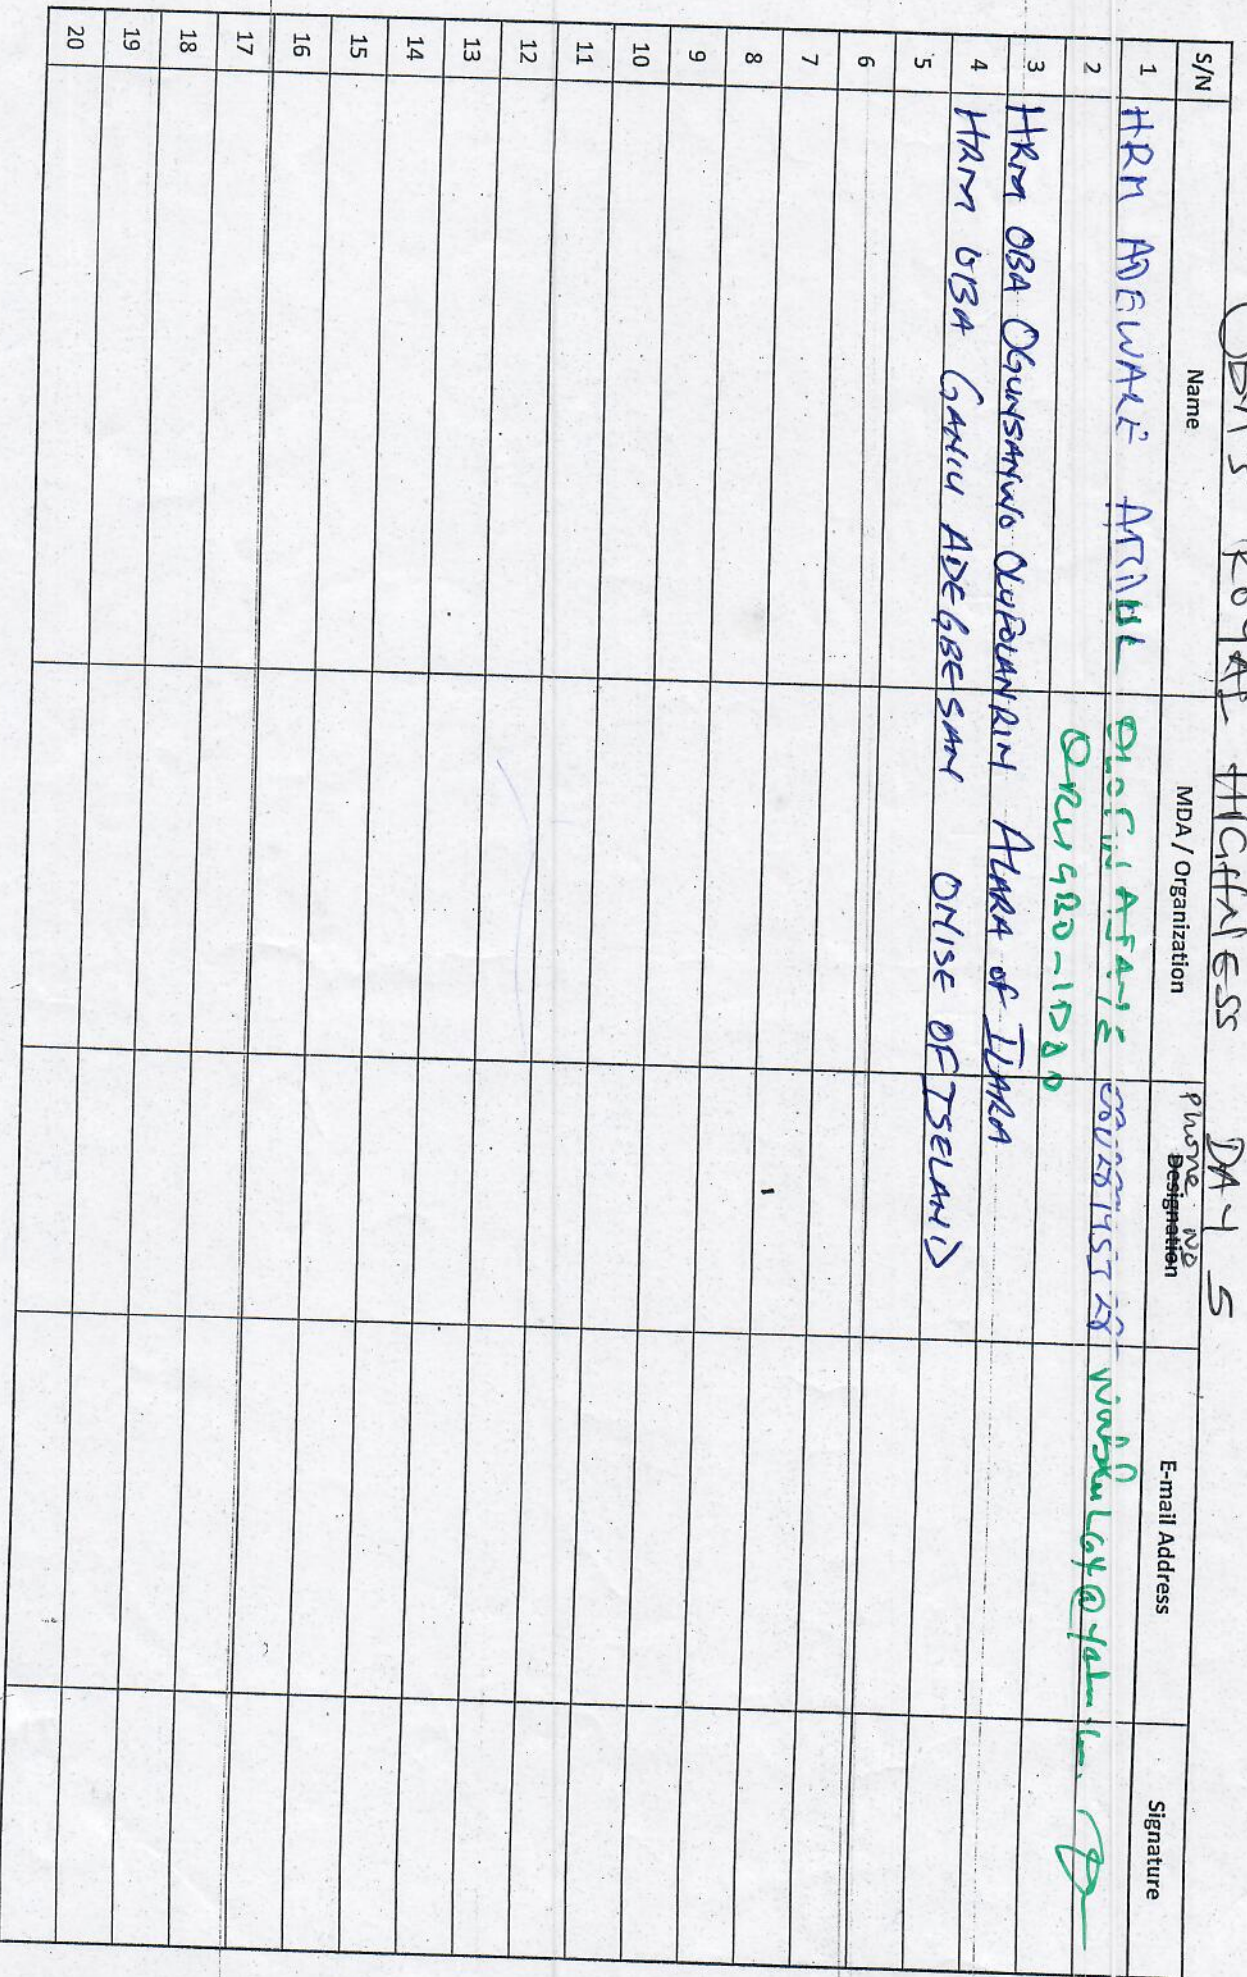 OBA'S ROYAL HIGHNESS DAY 5
S/N Name MDA / Organization Phone No Designation E-mail Address Signature
1 HRM ADEWALE
2 ORUGBO-IDDO
3 HRM OBA OGUNSANWO OLUFOLANRIN ALARA OF ILARA
4 HRM OBA GANIU ADEGBESAN ONISE OF ISELAND
5
6
7
8
9
10
11
12
13
14
15
16
17
18
19
20